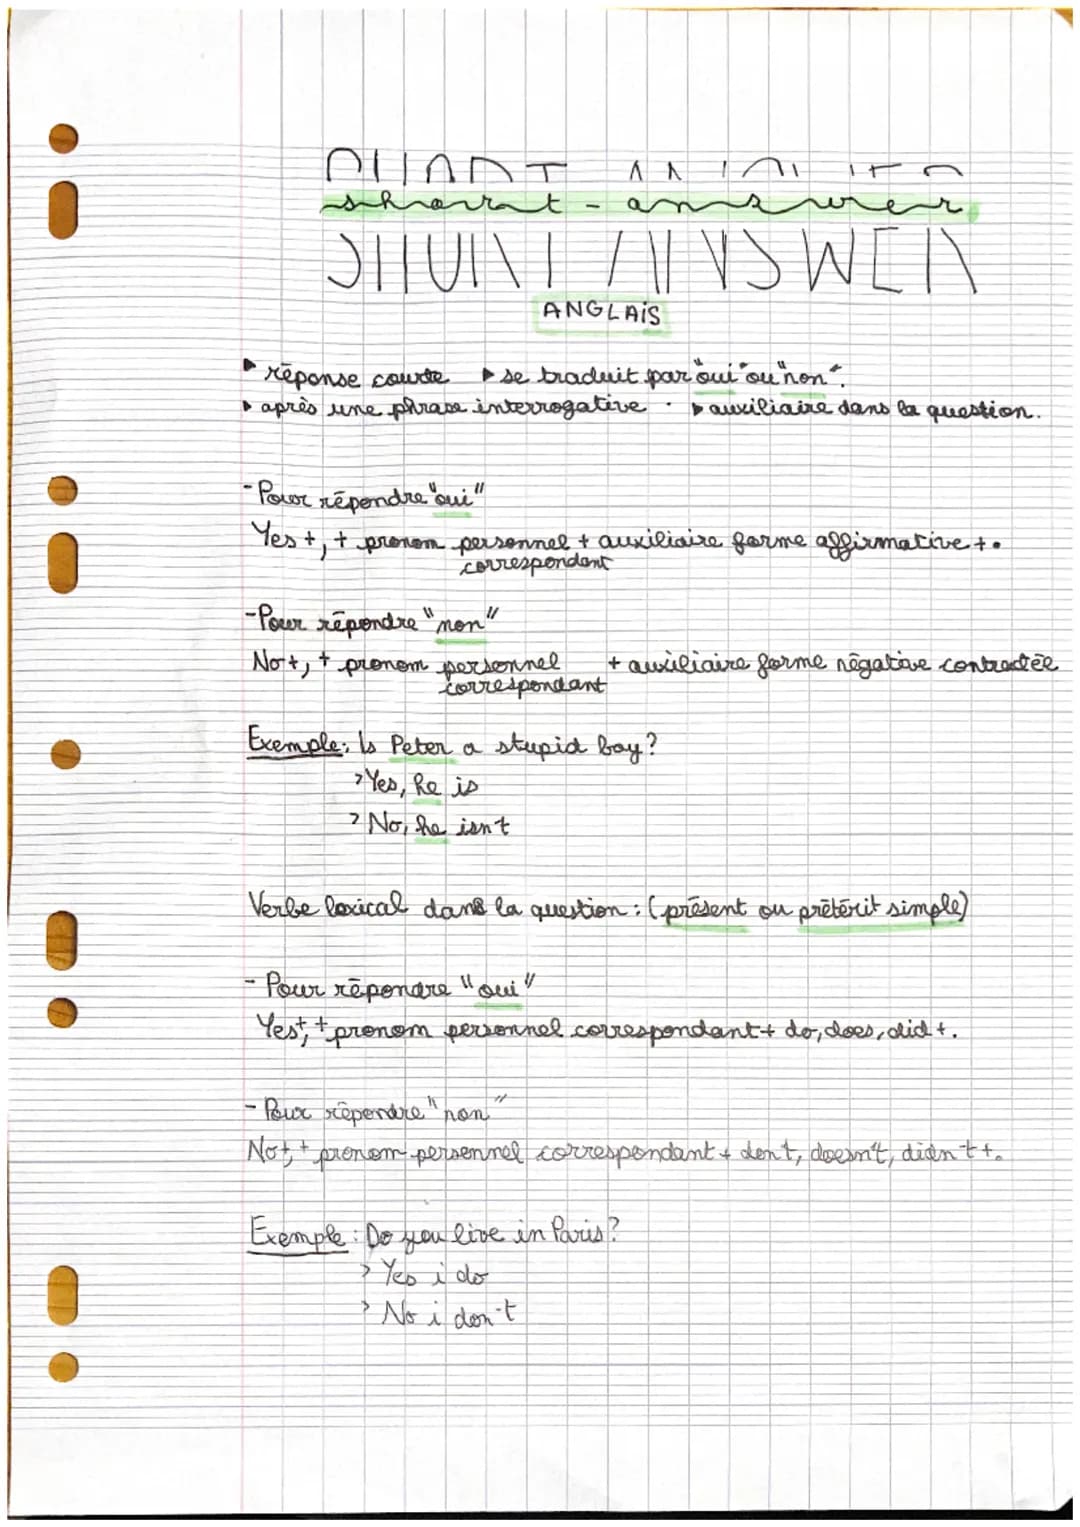 SHORT ANSWER
short-answer
ANGLAIS
▸ réponse courte ▸ se traduit par "oui" ou "non".
▸ après une phrase interrogative. ▸ auxiliaire dans la question.
- Pour répondre "oui"
Yes +, + pronom personnel + auxiliaire forme affirmative + .
correspondant
- Pour répondre "non"
No +, + pronom personnel + auxiliaire forme négative contractée
correspondant
Exemple: Is Peter a stupid boy?
> Yes, he is
> No, he isn't
Verbe lexical dans la question : (présent ou prétérit simple)
- Pour répondre "oui"
Yes +, + pronom personnel correspondant + do, does, did + .
- Pour répondre "non"
No +, + pronom personnel correspondant + don't, doesn't, didn't + .
Exemple : Do you live in Paris?
> Yes i do
> No i don't